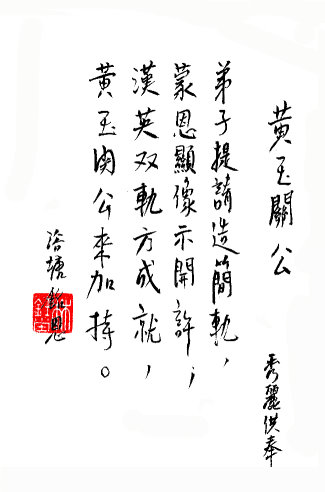 黃玉關公
弟子提請造簡軌，
蒙恩顯像示開許；
漢英双軌方成就，
黃玉関公來加持。
秀麗供奉